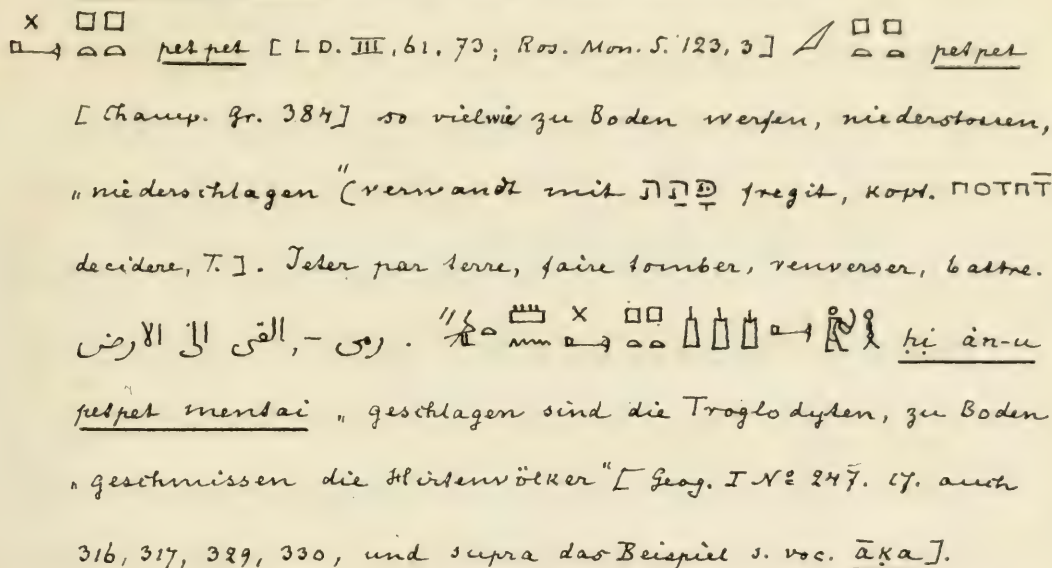 petpet [LD. III, 61, 73; Ros. Mon. S. 123, 3] petpet
[Champ. Gr. 384] so vielwie zu Boden werfen, niederstossen,
„niederschlagen" (verwandt mit פָּתַת fregit, kopt. ⲡⲟⲧⲡⲧ̄
decidere, T.]. Jeter par terre, faire tomber, renverser, battre.
رمى -, القى الى الارض . ḥi àn-u
petpet mentai „geschlagen sind die Troglodyten, zu Boden
„geschmissen die Hirtenvölker" [Geog. I No 247. cf. auch
316, 317, 329, 330, und supra das Beispiel s. voc. āḳa].